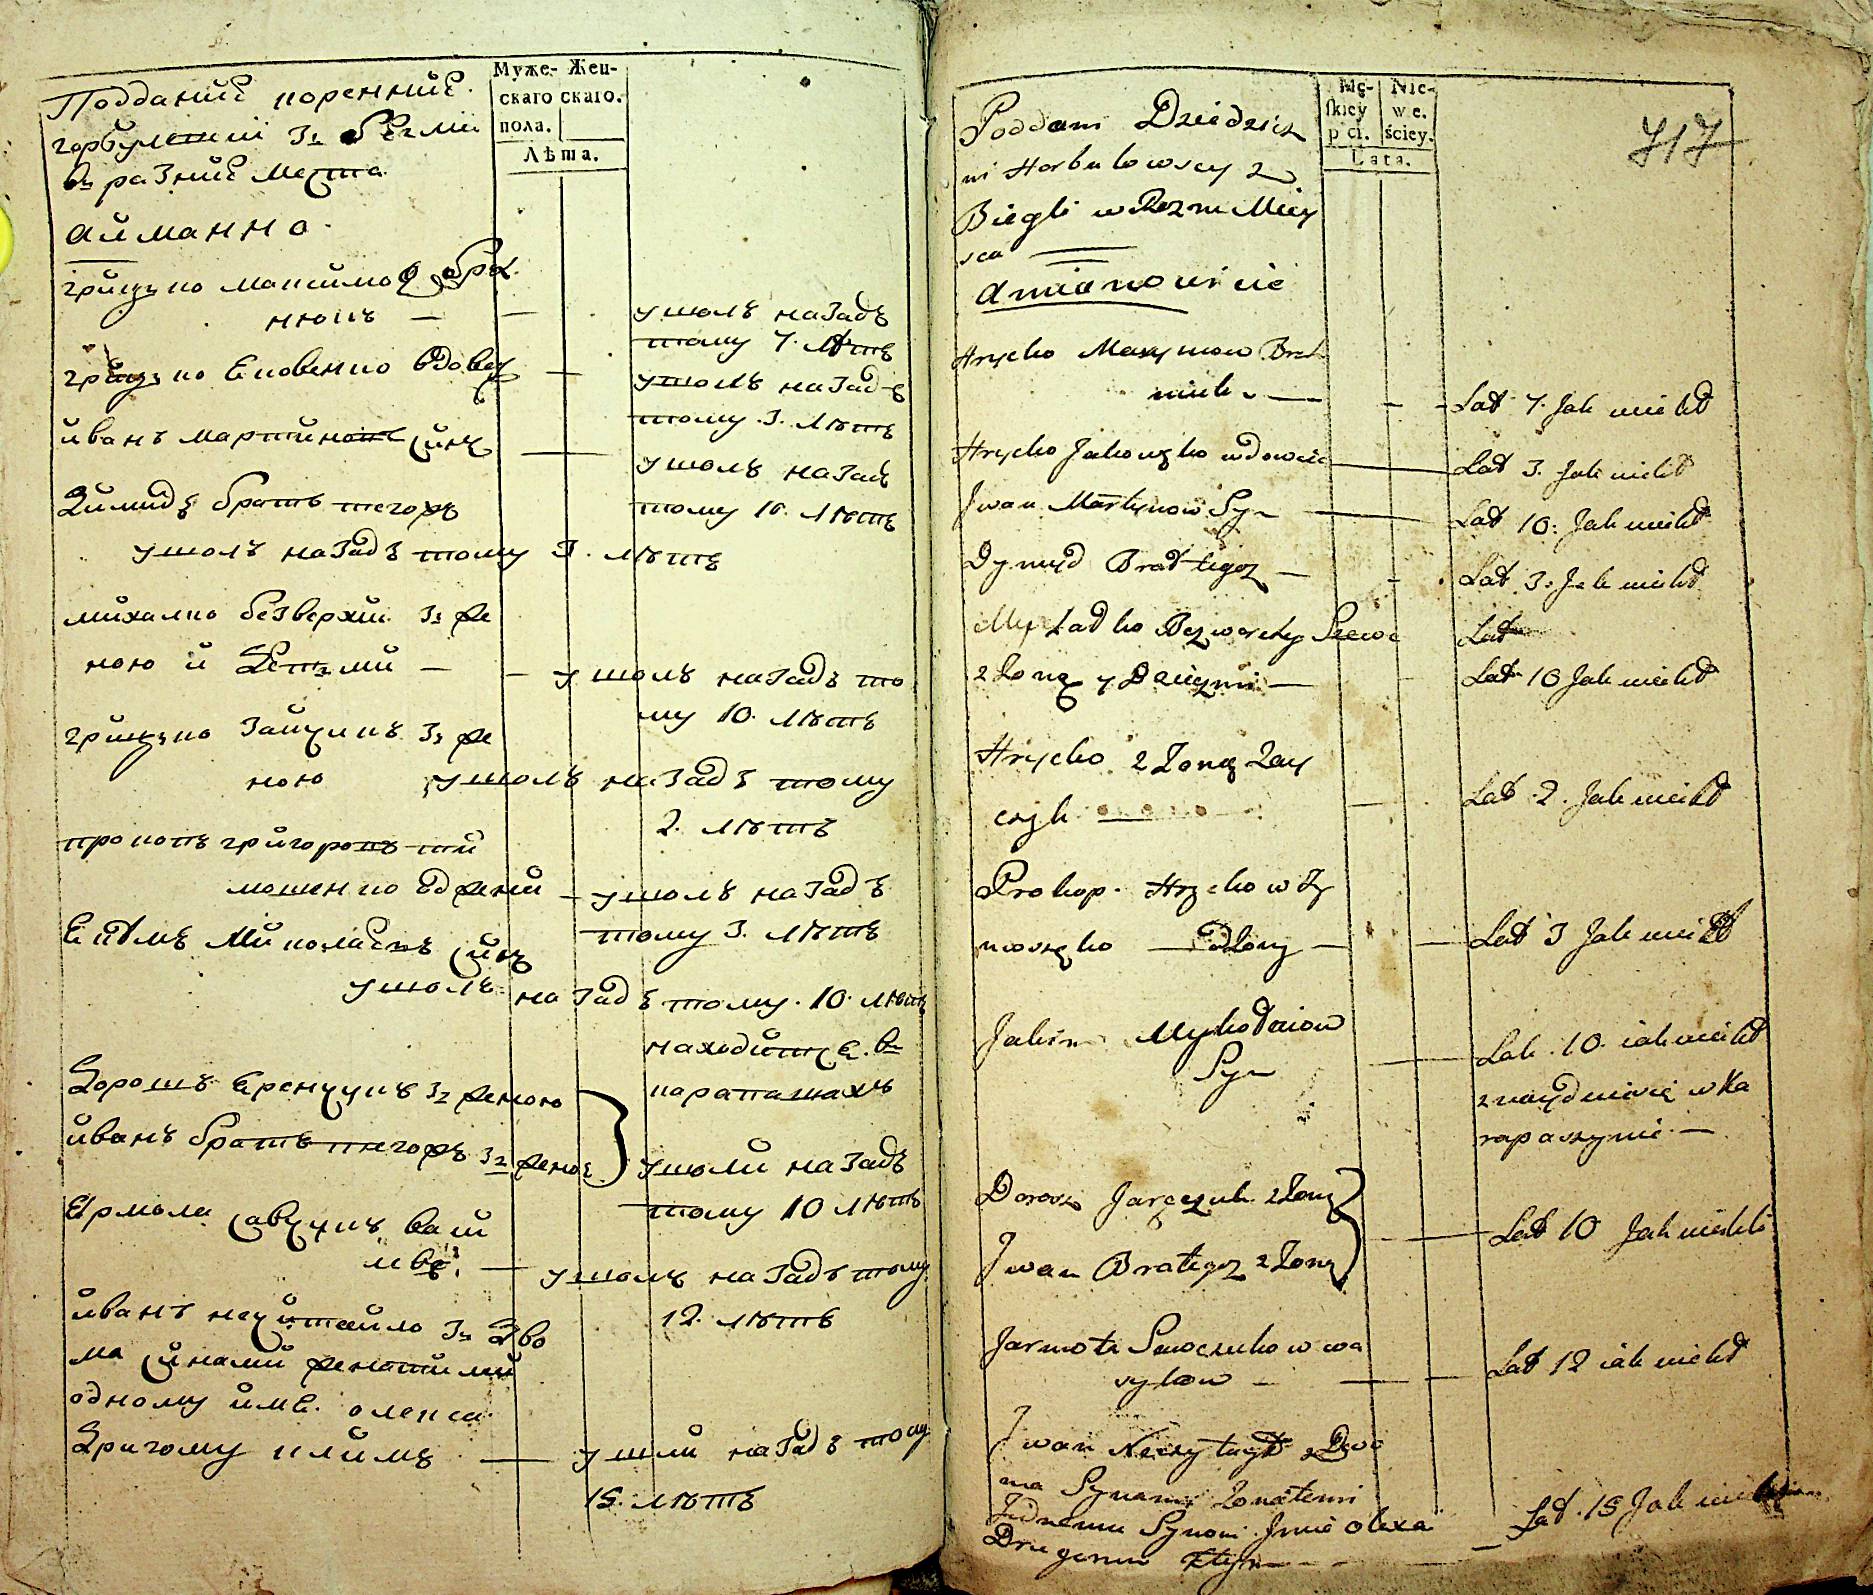 Муже- Жен-
скаго скаго.
пола.
Лѣта.
Подданние коренние
горбулетскии зъ бегли
въ разние места
айманно.
грицко максимов брат
нюкъ —
ушолъ назадъ
тому 7. лѣтъ
грицко Ековенко вдовец —
ушолъ назадъ
тому 3. лѣтъ
иванъ мартиновъ синъ —
ушолъ назадъ
тому 10. лѣтъ
Димидъ братъ тегожъ
ушолъ назадъ тому 3. лѣтъ
михалко безверхий зъ же
ною и Детми — ушолъ назадъ то
му 10. лѣтъ
грицко зайчукъ зъ же
ною ушолъ назадъ тому
2. лѣтъ
прокопъ григоровъ ти
мошенко од жени — ушолъ назадъ
тому 3. лѣтъ
Екимъ Миколаевъ синъ
ушолъ назадъ тому 10. лѣтъ
находитце въ
карапашахъ
Дорошъ Еремчукъ зъ женою
иванъ братъ тегожъ зъ женою
ушоли назадъ
тому 10 лѣтъ
Ермола савчукъ васи
лвъ — ушолъ назадъ тому
12. лѣтъ
иванъ нечитайло зъ Дво
ма синами женатими
одному име олекса
Другому климъ — ушли назадъ тому
15. лѣтъ
717
Mę- Nie-
skiey we-
płci. ściey.
Lata.
Poddani Dziedzicz
ni Horbulowscy z
Biegli w Rozne Miey
sca
Amianowicie
Hrycko Maxymow Brat
niuk — Lat 7. Jak uciekł
Hrycko Jakowęko wdowiec — Lat 3. Jak uciekł
Jwan Martynow Syn — Lat 10. Jak uciekł
Dymyd Brat tegoz — Lat 3. Jak uciekł
Bezwerchy Szewc Lat
z Zoną y Dziećmi — Lat 10 Jak uciekł
Hrycko z Zoną Zay
czyk — Lat 2. Jak uciekł
Prokop Hryckow Ty
moszęko od Zony — Lat 3 Jak uciekł
Jakim Mykołaiow
Syn — Lat 10. iak uciekł
znayduie się w Ka
rapaszynie —
Dorosz Jaręczuk z Zoną
Jwan Brat tegoz z Zoną
Lat 10 Jak uciekli
Jarmoła Sawczukow wa
sylow — Lat 12 iak uciekł
Jwan Neczytaylo z Dwo
ma Synami Zonatemi
Jednemu Synowi Jmie Olexa
Drugiemu Klym — Lat 15 Jak